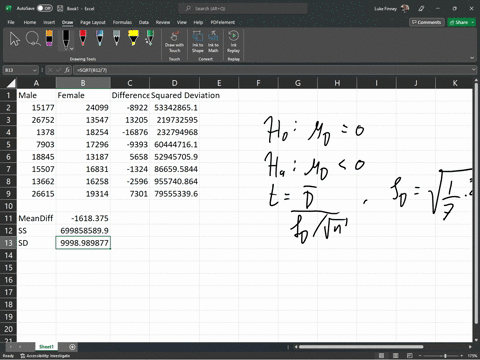 AutoSave Off Book1 - Excel Luke Finney
File Home Insert Draw Page Layout Formulas Data Review View Help PDFelement Comments Share
Draw with Touch Ink to Shape Ink to Math Ink Replay
Drawing Tools Touch Convert Replay
B13 =SQRT(B12/7)
A B C D E F G H I J K
1 Male Female Difference Squared Deviation
2 15177 24099 -8922 53342865.1
3 26752 13547 13205 219732595
4 1378 18254 -16876 232794968
5 7903 17296 -9393 60444716.1
6 18845 13187 5658 52945705.9
7 15507 16831 -1324 86659.5844
8 13662 16258 -2596 955740.864
9 26615 19314 7301 79555339.6
10
11 MeanDiff -1618.375
12 SS 699858589.9
13 SD 9998.989877
14
15
16
17
18
19
20
21
H₀ : μ_D = 0
Hₐ : μ_D < 0
t = D̄ / (S_D/√n) , S_D = √(1/7 ·
Sheet1
Ready Accessibility: Investigate 175%